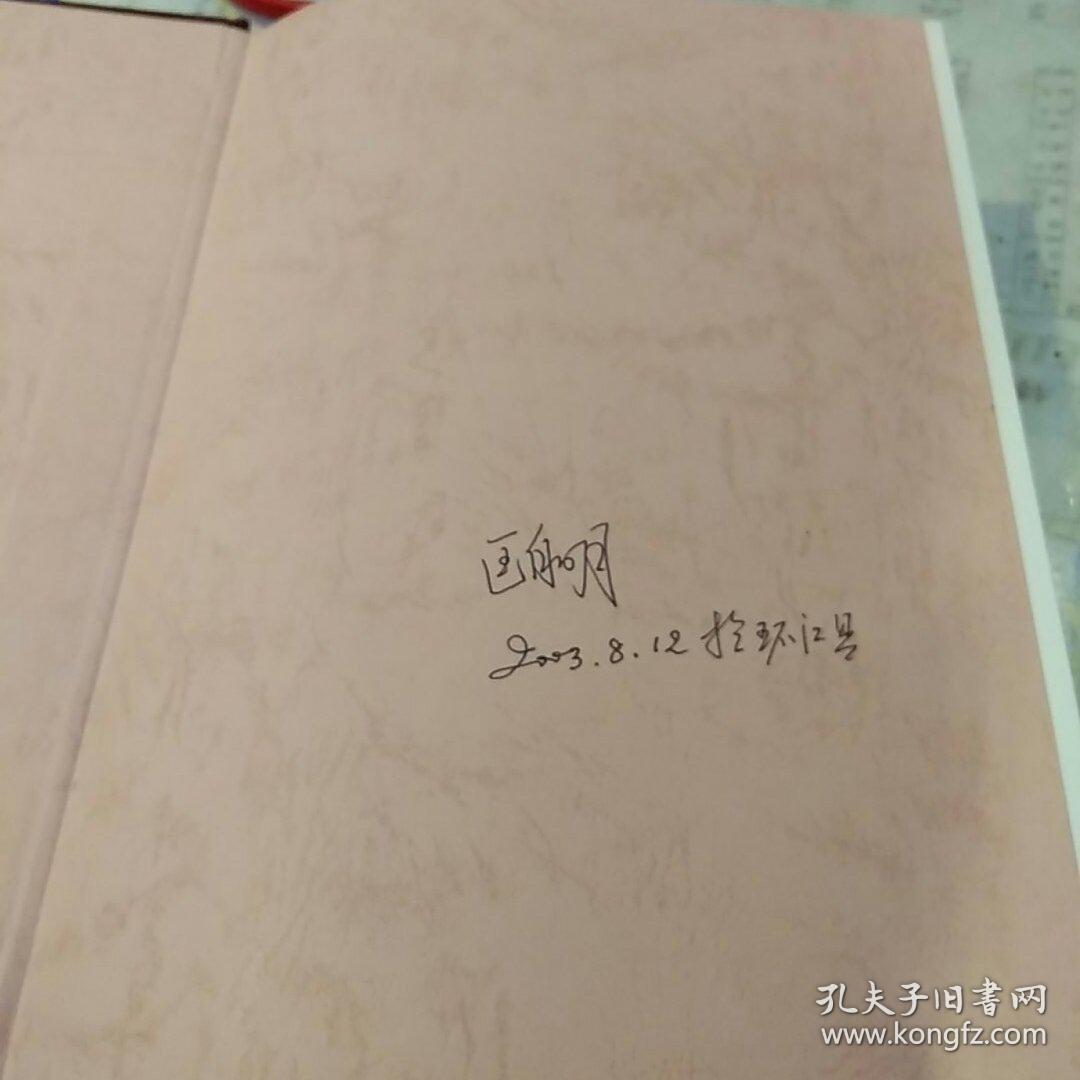 匡自明
2003.8.12 於环江县
孔夫子旧書网
www.kongfz.com